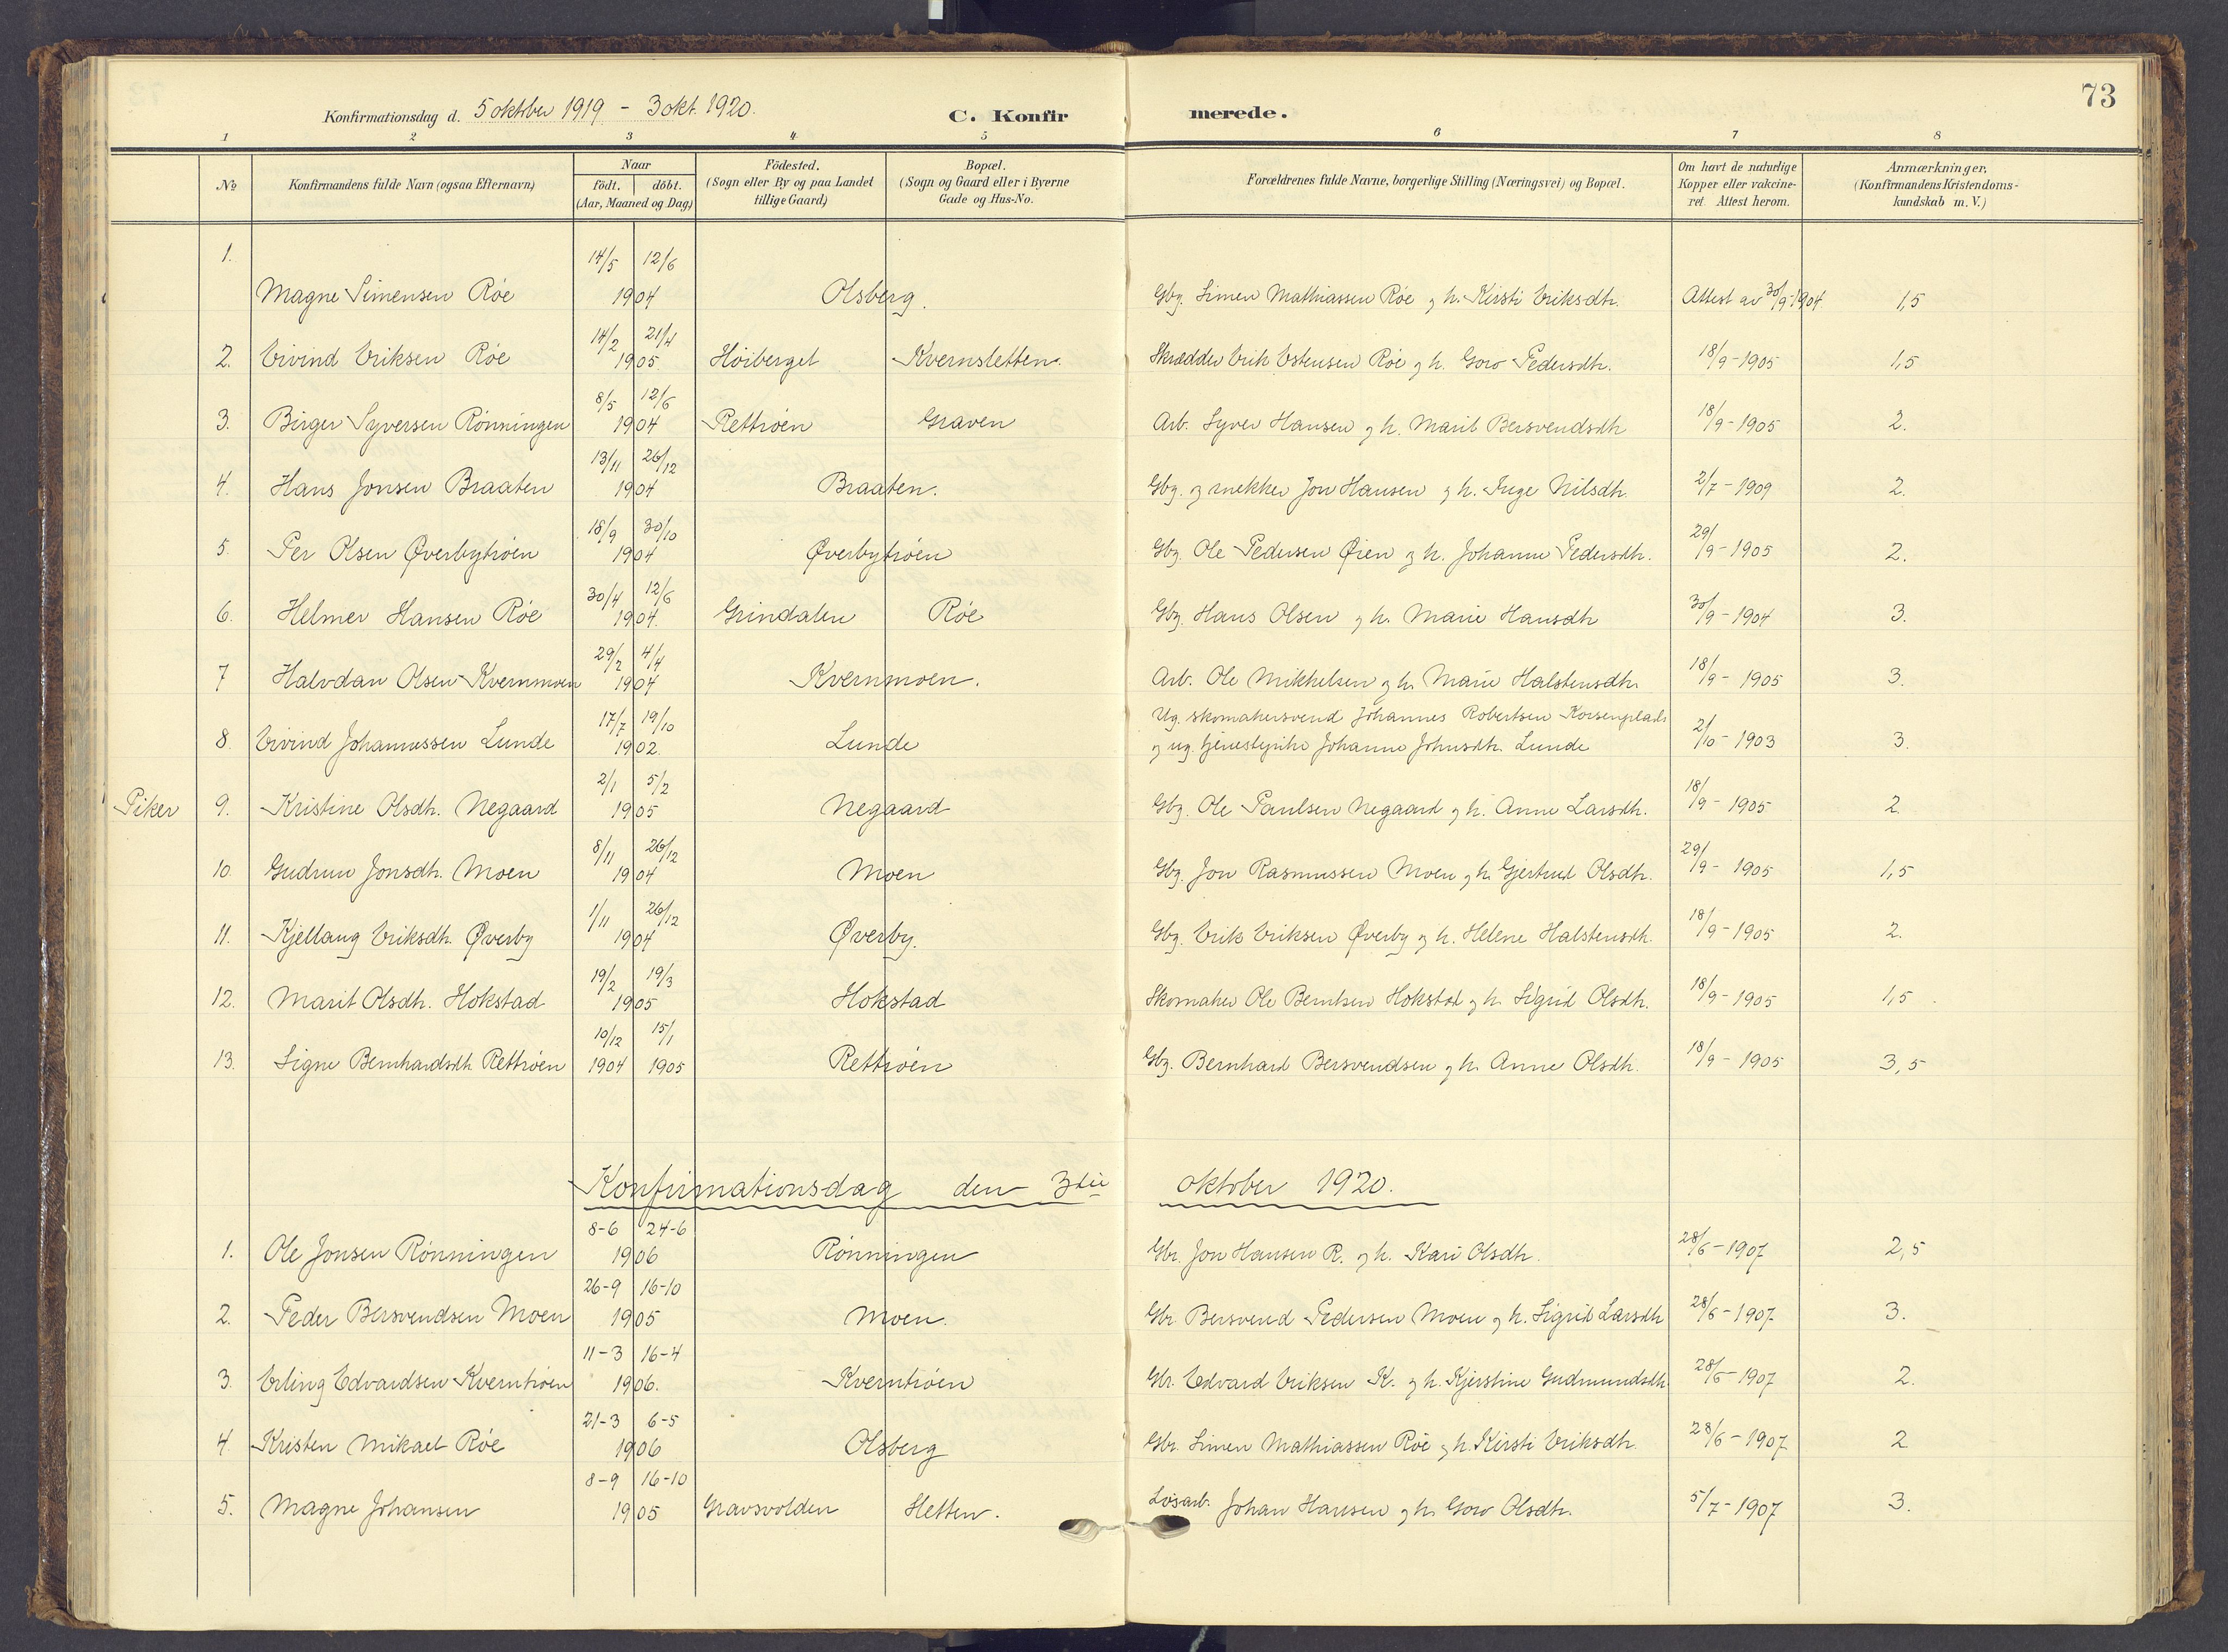 73
Konfirmationsdag d. 5 oktober 1919 - 3 okt. 1920.
C. Konfirmerede.
1 2 3 4 5 6 7 8
№ Konfirmandens fulde Navn (ogsaa Efternavn) Naar födt. döbt. (Aar, Maaned og Dag) Födested. (Sogn eller By og paa Landet tillige Gaard) Bopæl. (Sogn og Gaard eller i Byerne Gade og Hus-No. Forældrenes fulde Navne, borgerlige Stilling (Næringsvei) og Bopæl. Om havt de naturlige Kopper eller vakcineret. Attest herom. Anmærkninger. (Konfirmandens Kristendomskundskab m. V.)
1. 14/5 12/6
Magne Simensen Röe 1904 Olsberg. Gbg. Simen Mathiassen Röe og h. Kirsti Eriksdtr. Attest av 30/9-1904. 1,5
14/2 21/4
2. Eivind Eriksen Röe 1905 Höiberget Kvernsletten. Skrædder Erik Estensen Röe og h. Goro Pedersdtr. 18/9-1905 1,5
8/5 12/6
3. Birger Syversen Rönningen 1904 Rettröen Graven Arb. Syver Hansen og h. Marit Bersvendsdtr 18/9-1905 2.
13/11 26/12
4. Hans Jonsen Braaten 1904 Braaten. Gbg. og snekker Jon Hansen og h. Inge Nilsdtr. 2/7-1909 2.
18/9 30/10
5. Per Olsen Øverbytröen 1904 Øverbytröen Gbg. Ole Pedersen Øien og h. Johanne Pedersdtr. 29/9-1905 2.
30/4 12/6
6. Helmer Hansen Röe 1904. Grindalen Röe Gbg. Hans Olsen og h. Marie Hansdtr 30/9-1904 3.
29/2 4/4
7 Halvdan Olsen Kvernmoen 1904 Kvernmoen. Arb. Ole Mikkelsen og h. Marie Halstensdtr. 18/9-1905 3.
17/7 19/10 Ug. skomakersvend Johannes Robertsen Korsenplads
8. Eivind Johannessen Lunde 1902. Lunde og ug. tjenestepike Johanne Johnsdtr. Lunde 2/10-1903 3.
2/1 5/2
Piker 9. Kristine Olsdtr. Negaard 1905 Negaard Gbg. Ole Paulsen Negaard og h. Anne Larsdtr. 18/9-1905 2.
8/11 26/12
10. Gudrun Jonsdtr. Moen 1904 Moen Gbg. Jon Rasmussen Moen og h. Gjertrud Olsdtr. 29/9-1905 1,5
1/11 26/12
11. Kjellaug Eriksdtr. Øverby 1904 Øverby. Gbg. Erik Eriksen Øverby og h. Helene Halstensdtr. 18/9-1905 2.
19/2 19/3
12. Marit Olsdtr. Hokstad 1905 Hokstad Skomaker Ole Berntsen Hokstad og h. Sigrid Olsdtr. 18/9-1905 1,5
10/12 15/1
13. Signe Bernhardsdtr. Rettröen 1904 1905 Rettröen Gbg. Bernhard Bersvendsen og h. Anne Olsdtr. 18/9-1905 3,5
Konfirmationsdag den 3die oktober 1920.
8-6 24-6
1. Ole Jonsen Rönningen 1906 Rönningen Gbr. Jon Hansen R. og h. Kari Olsdtr. 28/6-1907 2,5
26-9 16-10
2. Peder Bersvendsen Moen 1905 Moen. Gbr. Bersvend Pedersen Moen og h. Sigrid Larsdtr 28/6-1907 3.
11-3 16-4
3. Erling Edvardsen Kverntröen 1906. Kverntröen Gbr. Edvard Eriksen K. og h. Kjerstine Gudmundsdtr. 28/6-1907 2.
21-3 6-5
4. Kristen Mikael Röe 1906 Olsberg Gbr. Simen Mathiassen Röe og h. Kirsti Eriksdtr. 28/6-1907 2
8-9 16-10
5. Magne Johansen 1905 Gravsvolden Hetten. Lösarb. Johan Hansen og h. Goro Olsdtr. 5/7-1907 3.